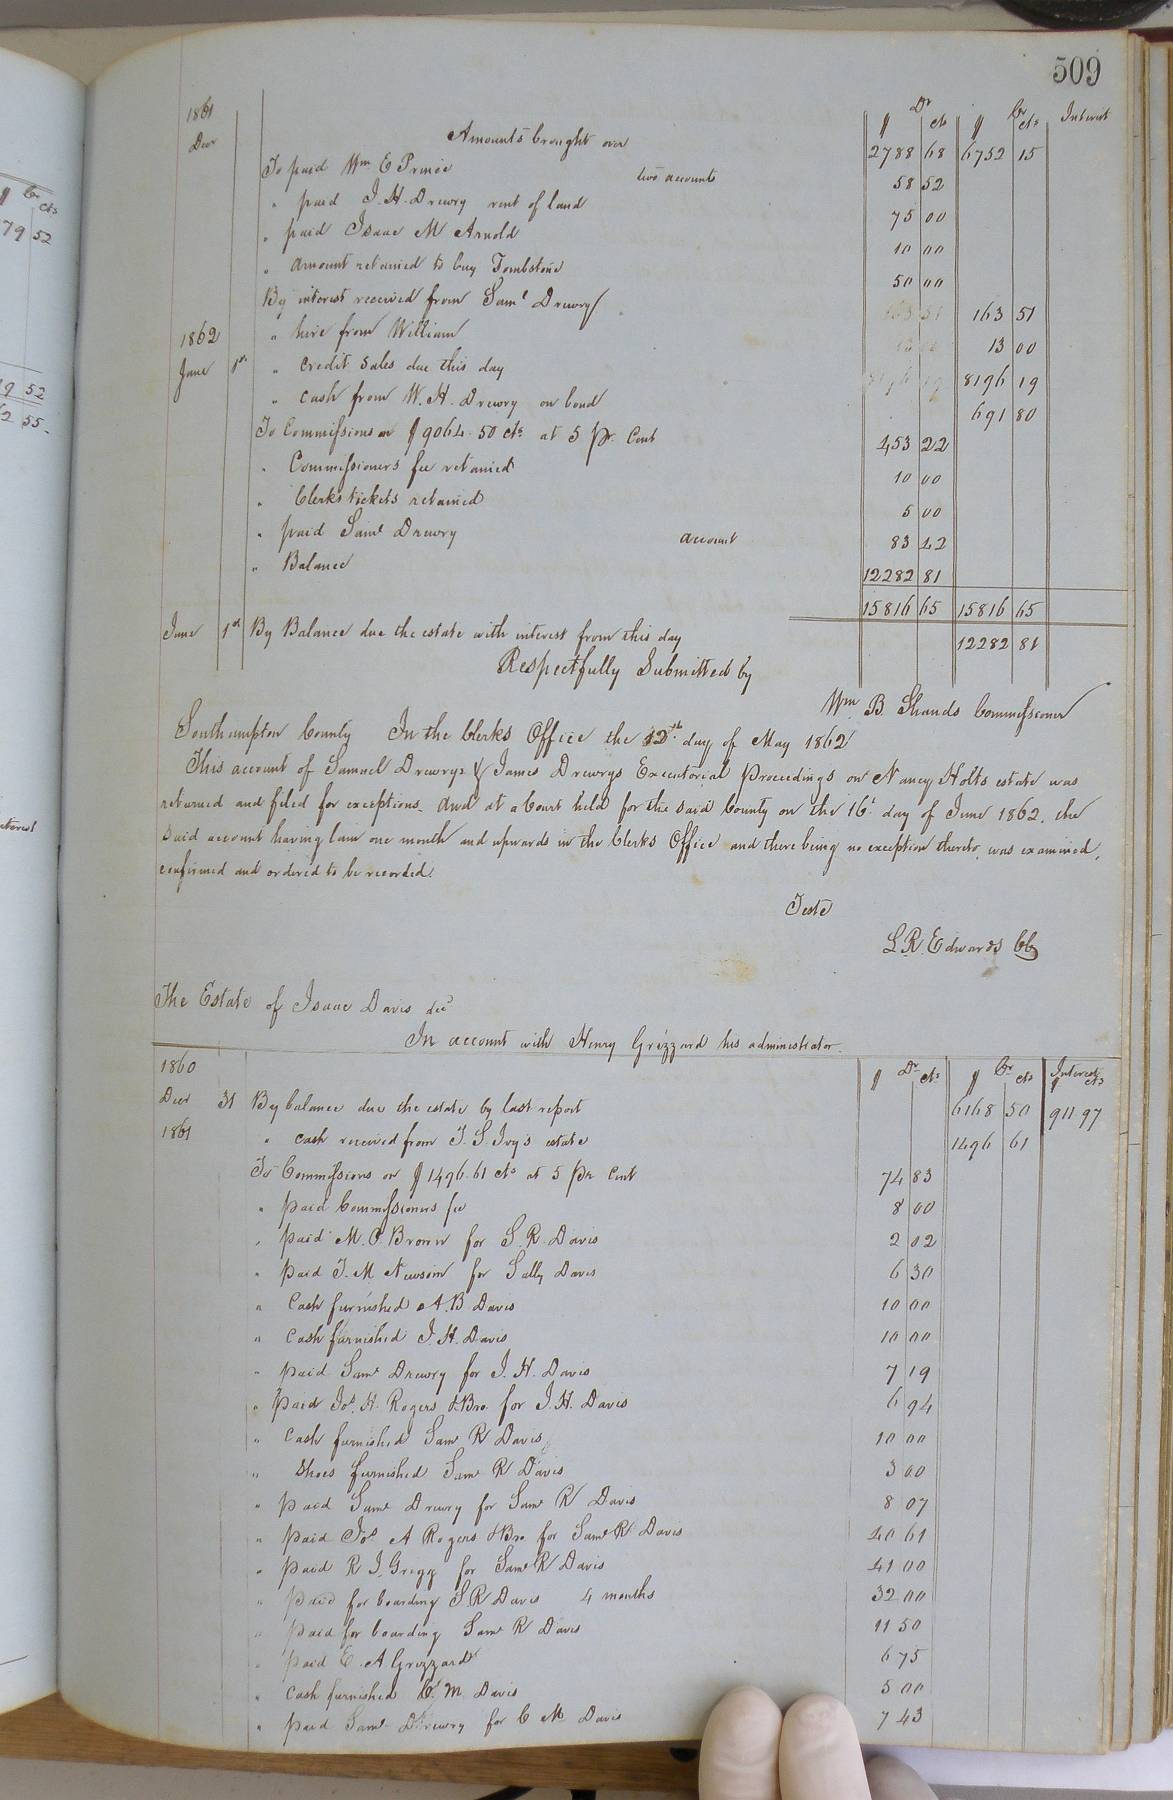 509
1861 Dr Cr Interest
Decr Amounts brought over $ cts $ cts
2788 68 6752 15
To paid Wm E Prince two accounts 58 52
" paid J. H. Drewry rent of land 75 00
" paid Isaac M Arnold 10 00
" Amount retained to buy Tombstone 50 00
By interest received from Saml Drewry 163 51
1862 " hire from William 13 00
June 1st " credit sales due this day 8196 19
" cash from W. H. Drewry on bond 691 80
To Commissions on $9064.50 cts at 5 pr. Cent 453 22
" Commissioners fee retained 10 00
" Clerks tickets retained 5 00
" paid Saml Drewry account 83 42
" Balance 12282 81
15816 65 15816 65
June 1st By Balance due the estate with interest from this day 12282 81
Respectfully Submitted by
Wm B. Shands Commissioner
Southampton County In the Clerks Office the 12th day of May 1862
This account of Samuel Drewrys & James Drewrys Executorial Proceedings on Nancy Holts estate was
returned and filed for exceptions. And at a Court held for the said County on the 16t day of June 1862. the
said account having lain one month and upwards in the Clerks Office and there being no exception thereto, was examined,
confirmed and ordered to be recorded.
Teste
L. R. Edwards CC
The Estate of Isaac Davis decd
In account with Henry Grizzard his administrator.
1860 $ Dr cts $ Cr cts Interest $ cts
Decr 31 By balance due the estate by last report 6168 50 911 97
1861 " cash received from T. S. Ivy's estate 1496 61
To Commissions on $1496.61 cts at 5 pr Cent 74 83
" paid Commissioners fee 8 00
" paid M. C. Brown for S. R. Davis 2 02
" paid T. M. Newsom for Sally Davis 6 30
" Cash furnished A. B Davis 10 00
" Cash furnished J. H. Davis 10 00
" paid Saml Drewry for J. H. Davis 7 19
" paid Jos. H. Rogers & Bro. for J. H. Davis 6 94
" Cash furnished Saml R Davis 10 00
" Shoes furnished Saml R Davis 3 00
" paid Saml Drewry for Saml R Davis 8 07
" paid Jos A Rogers & Bro for Saml R Davis 40 61
" paid R J. Gregg for Saml R Davis 41 00
" paid for boarding S. R Davis 4 months 32 00
" paid for boarding Saml R Davis 11 50
" paid E. A. Grizzard 6 75
" Cash furnished C. M. Davis 5 00
" paid Saml Drewry for C M Davis 7 43
79 52